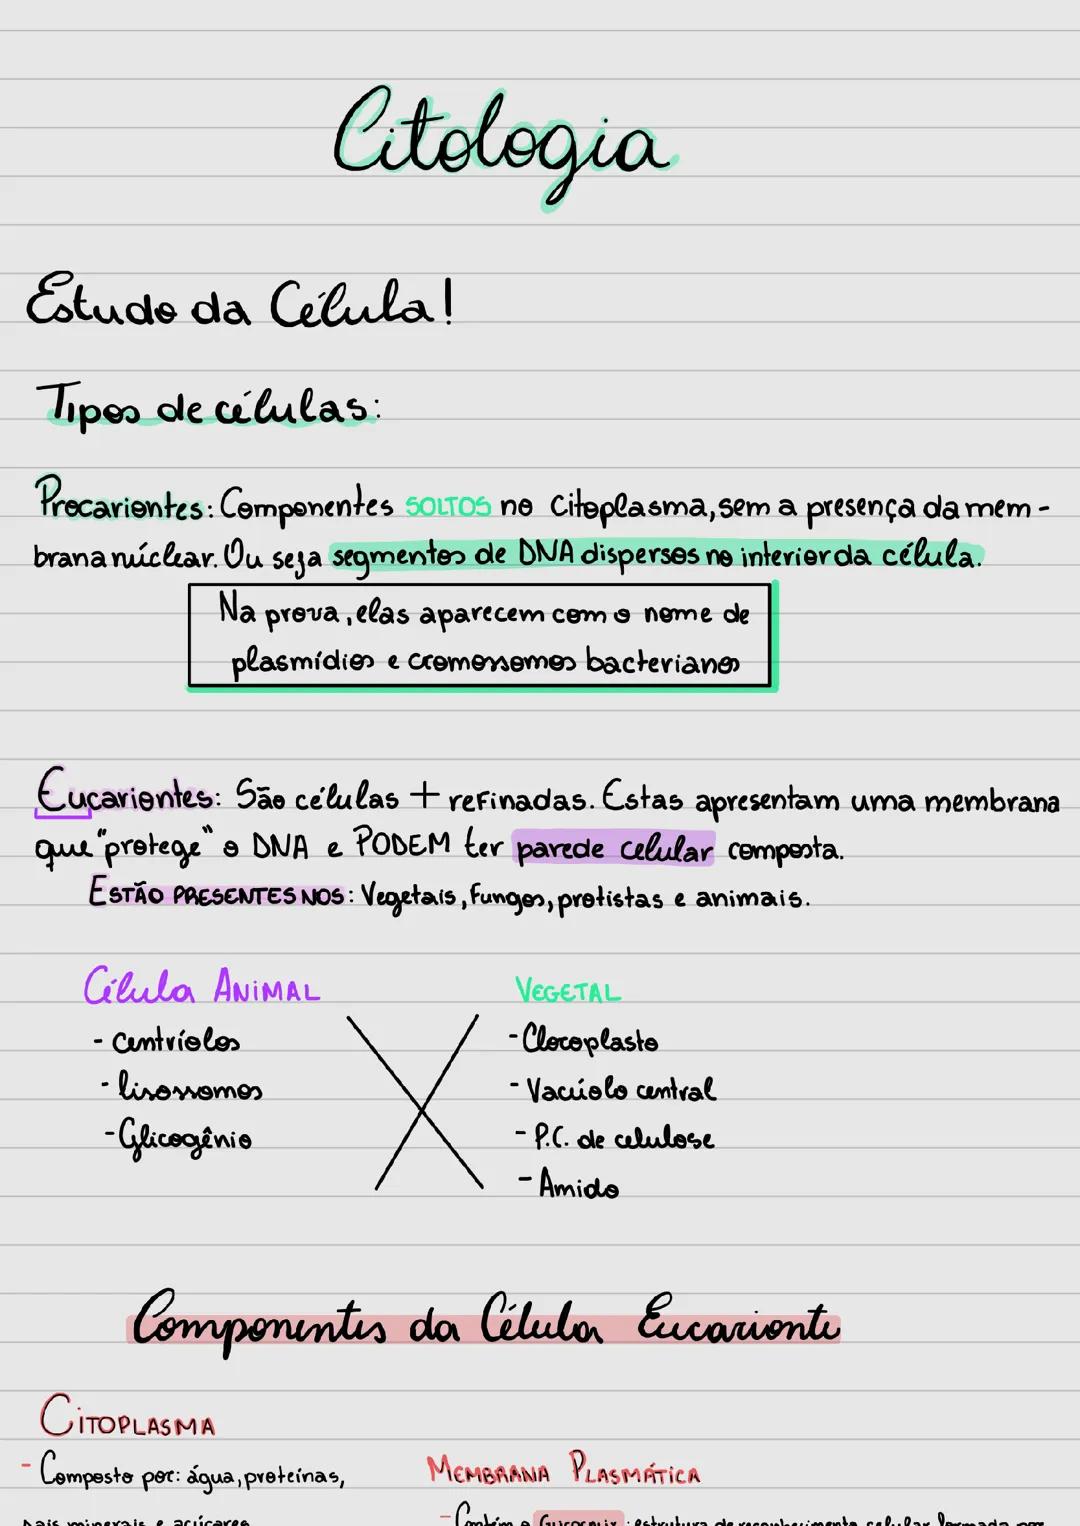 Citologia
Estudo da Célula!
Tipos de células:
Procariontes: Componentes SOLTOS no citoplasma, sem a presença da mem-
brana núclear. Ou seja segmentos de DNA dispersos no interior da célula.
Na prova, elas aparecem com o nome de
plasmídios e cromossomos bacterianos
Eucariontes: São células + refinadas. Estas apresentam uma membrana
que "protege" o DNA e PODEM ter parede celular composta.
ESTÃO PRESENTES NOS: Vegetais, fungos, protistas e animais.
Célula ANIMAL
- centríolos
- lisossomos
- Glicogênio
VEGETAL
- Clocoplasto
- Vacúolo central
- P.C. de celulose
- Amido
Componentes da Célula Eucarionte
CITOPLASMA
- Composto por: água, proteínas,
sais minerais e açúcares
MEMBRANA PLASMÁTICA
- Contém o Glicocalix: estrutura de reconhecimento celular formada por